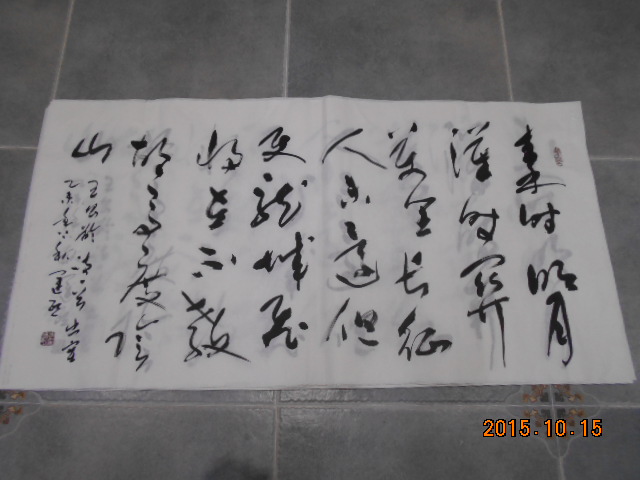 秦时明月
漢时関
萬里长征
人未還但
使龍城飞
将在不教
胡马度阴
山
王昌龄诗一首出塞
乙未年秋
2015.10.15